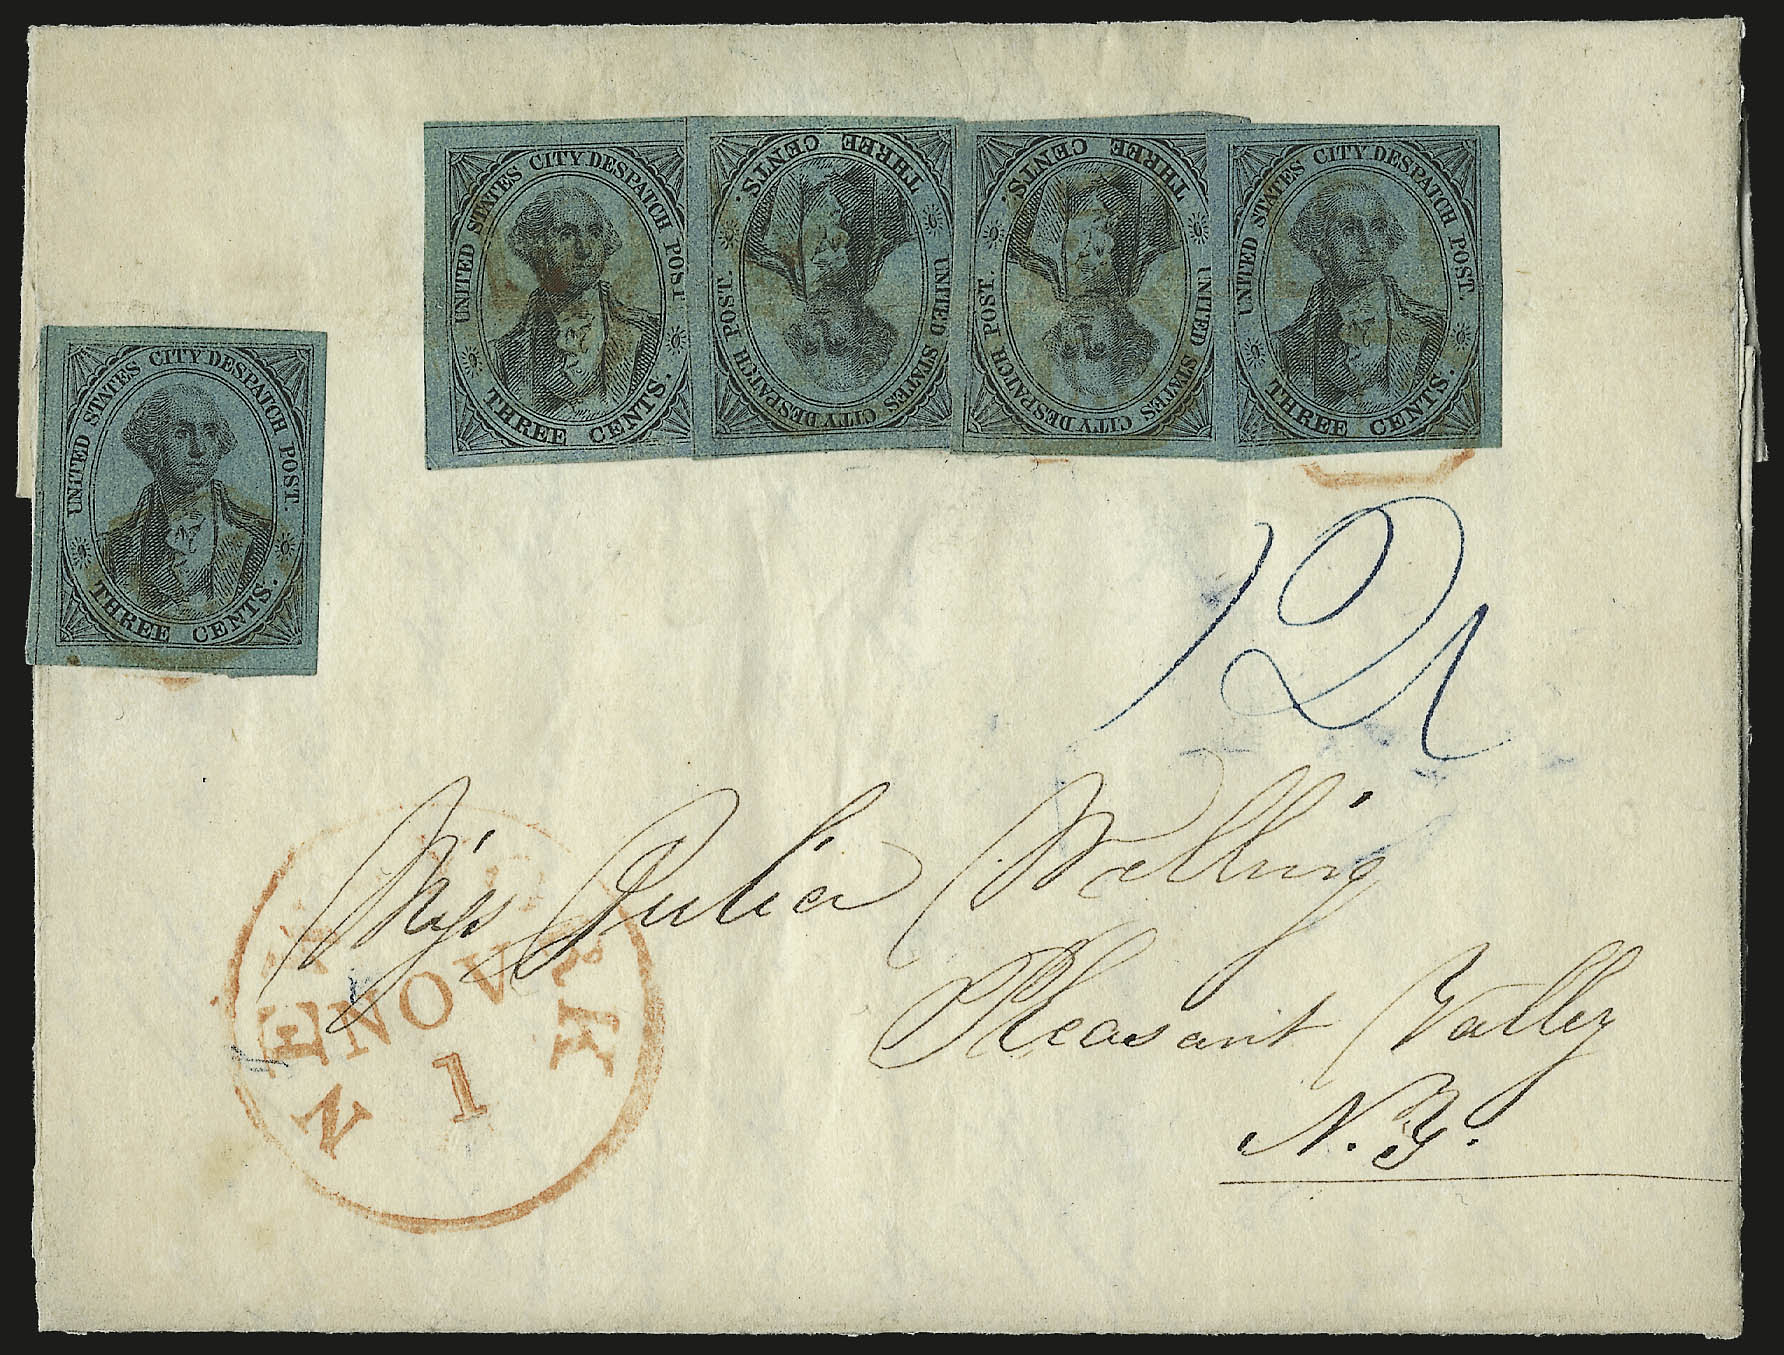 UNITED STATES CITY DESPATCH POST.
THREE CENTS.
UNITED STATES CITY DESPATCH POST.
THREE CENTS.
UNITED STATES CITY DESPATCH POST.
THREE CENTS.
UNITED STATES CITY DESPATCH POST.
THREE CENTS.
UNITED STATES CITY DESPATCH POST.
THREE CENTS.
Miss Julia Welling
Pleasant Valley
N.Y.
NOV
1